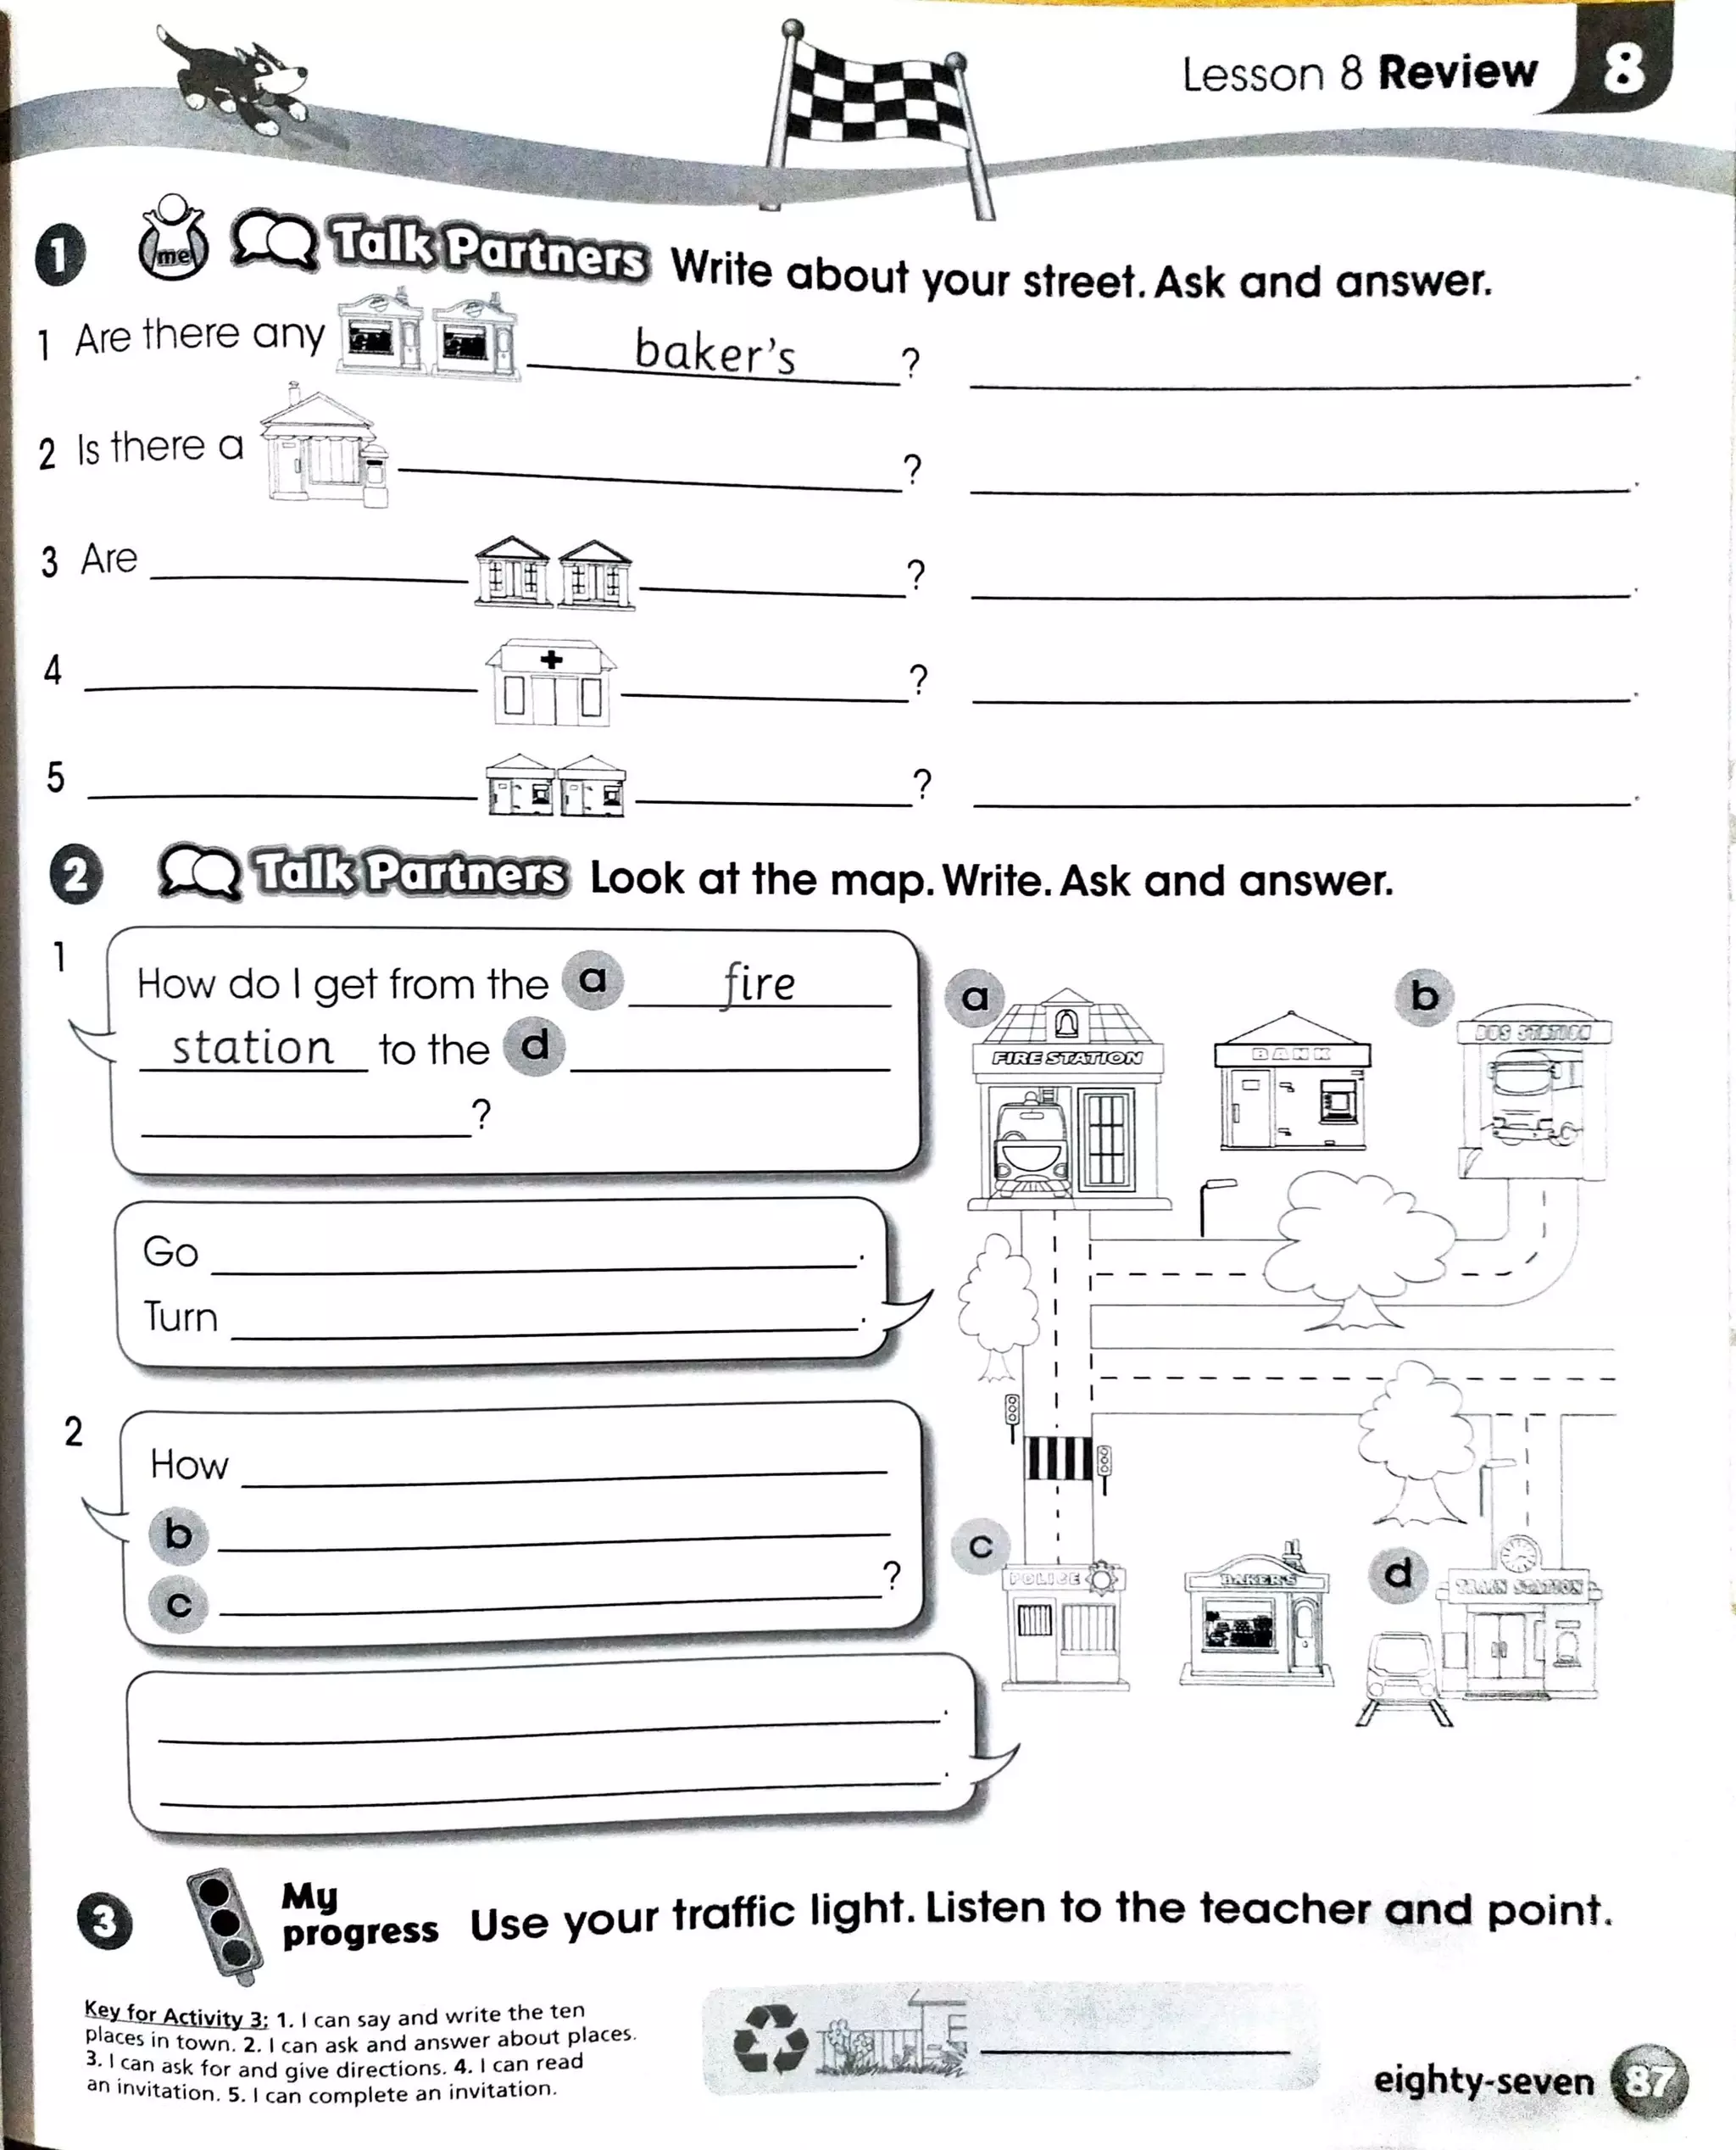 Lesson 8 Review 8
1 me Talk Partners Write about your street. Ask and answer.
1 Are there any baker's ? .
2 Is there a ? .
3 Are ? .
4 ? .
5 ? .
2 Talk Partners Look at the map. Write. Ask and answer.
1
How do I get from the a fire
station to the d
?
Go .
Turn .
2
How
b
c ?
.
.
a
FIRE STATION
BANK
b
BUS STATION
c
POLICE
BAKER'S
d
TRAIN STATION
3 My progress Use your traffic light. Listen to the teacher and point.
Key for Activity 3: 1. I can say and write the ten
places in town. 2. I can ask and answer about places.
3. I can ask for and give directions. 4. I can read
an invitation. 5. I can complete an invitation.
eighty-seven 87